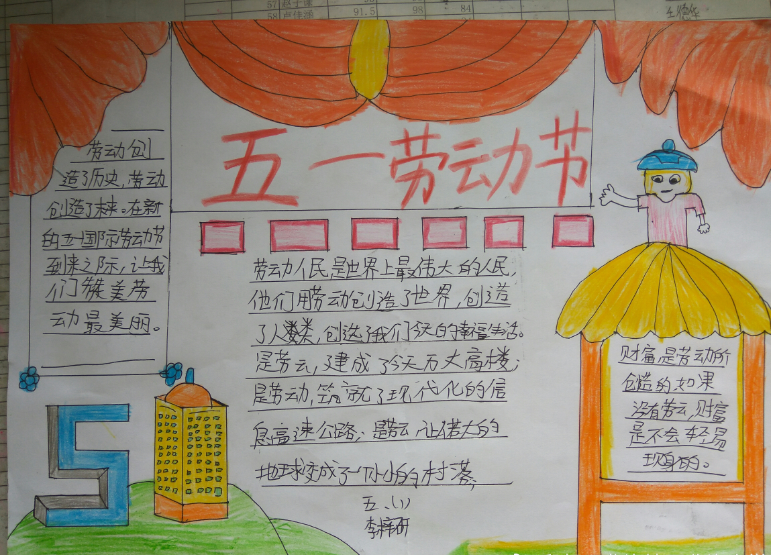 五一劳动节
劳动创
造了历史,劳动
创造了未来。在新
的五一国际劳动节
到来之际,让我
们 美劳
动最美丽。
劳动人民是世界上最伟大的人民,
他们用劳动创造了世界,创造
了人类,创造了我们今天的幸福生活。
是劳云,建成了今天万丈高楼,
是劳动,筑就了现代化的信
息高速公路;是劳云让偌大的
地球变成了一个小小的村落;
五、(1)
李梓研
财富是劳动所
创造的,如果
没有劳云,财富
是不会轻易
的。
57
58
91.5
98
84